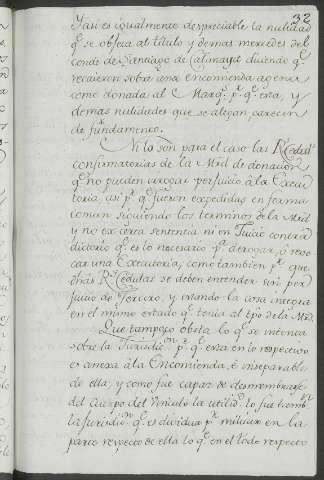 32
Y asi es igualmente despreciable la nulidad
q.e se objeta al titulo y demas mercedes del
conde de Santiago de Calimaya diciendo q.e
recaieron sobre una encomienda agena
como donada al Marq.s p.r q.e esta, y
demas nulidades que se alegan, parecen
de fundamento.
Ni lo son para el caso las R.s Cedul.s
confirmatorias de la Mrd de donacion
q.e no pueden irrogar perjuicio à la Execu
toria, asi p.r q.e fueron expedidas en forma
comun siguiendo los terminos de la Mrd
y no ex certa sententia ni en Juicio contra
dictorio q.e es lo necesario p.a derogar, ò revo
car una Executoria, como tambien p.r que
d̃has R.s Cedulas se deben entender sin per
juicio de Tercero, y estando la cosa integra
en el mismo estado q.e tenia al tpo de la Mrd.
Que tampoco obsta lo q.e se intenta
sobre la Jurisdic.on p.r q.e esta en lo respectivo
es anexa à la Encomienda, è inseparable
de ella, y como fue capaz de desmembrarse
del Cuerpo del Vinculo la utilid.d lo fue tamb.n
la Jurisdic.on q.e es dividua p.a militar en la
parte respecto de ella lo q.e en el todo respecto